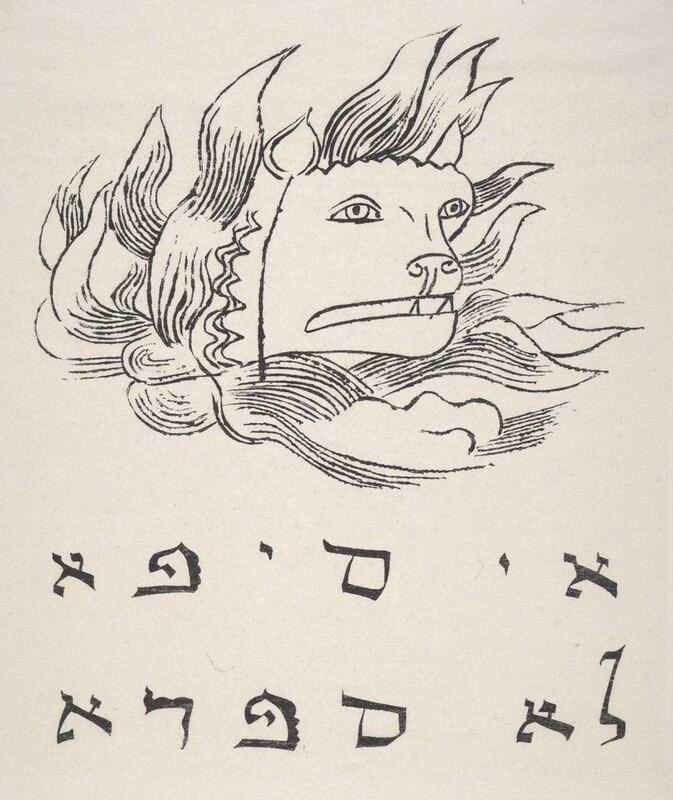 אי סיפא
לא ספרא